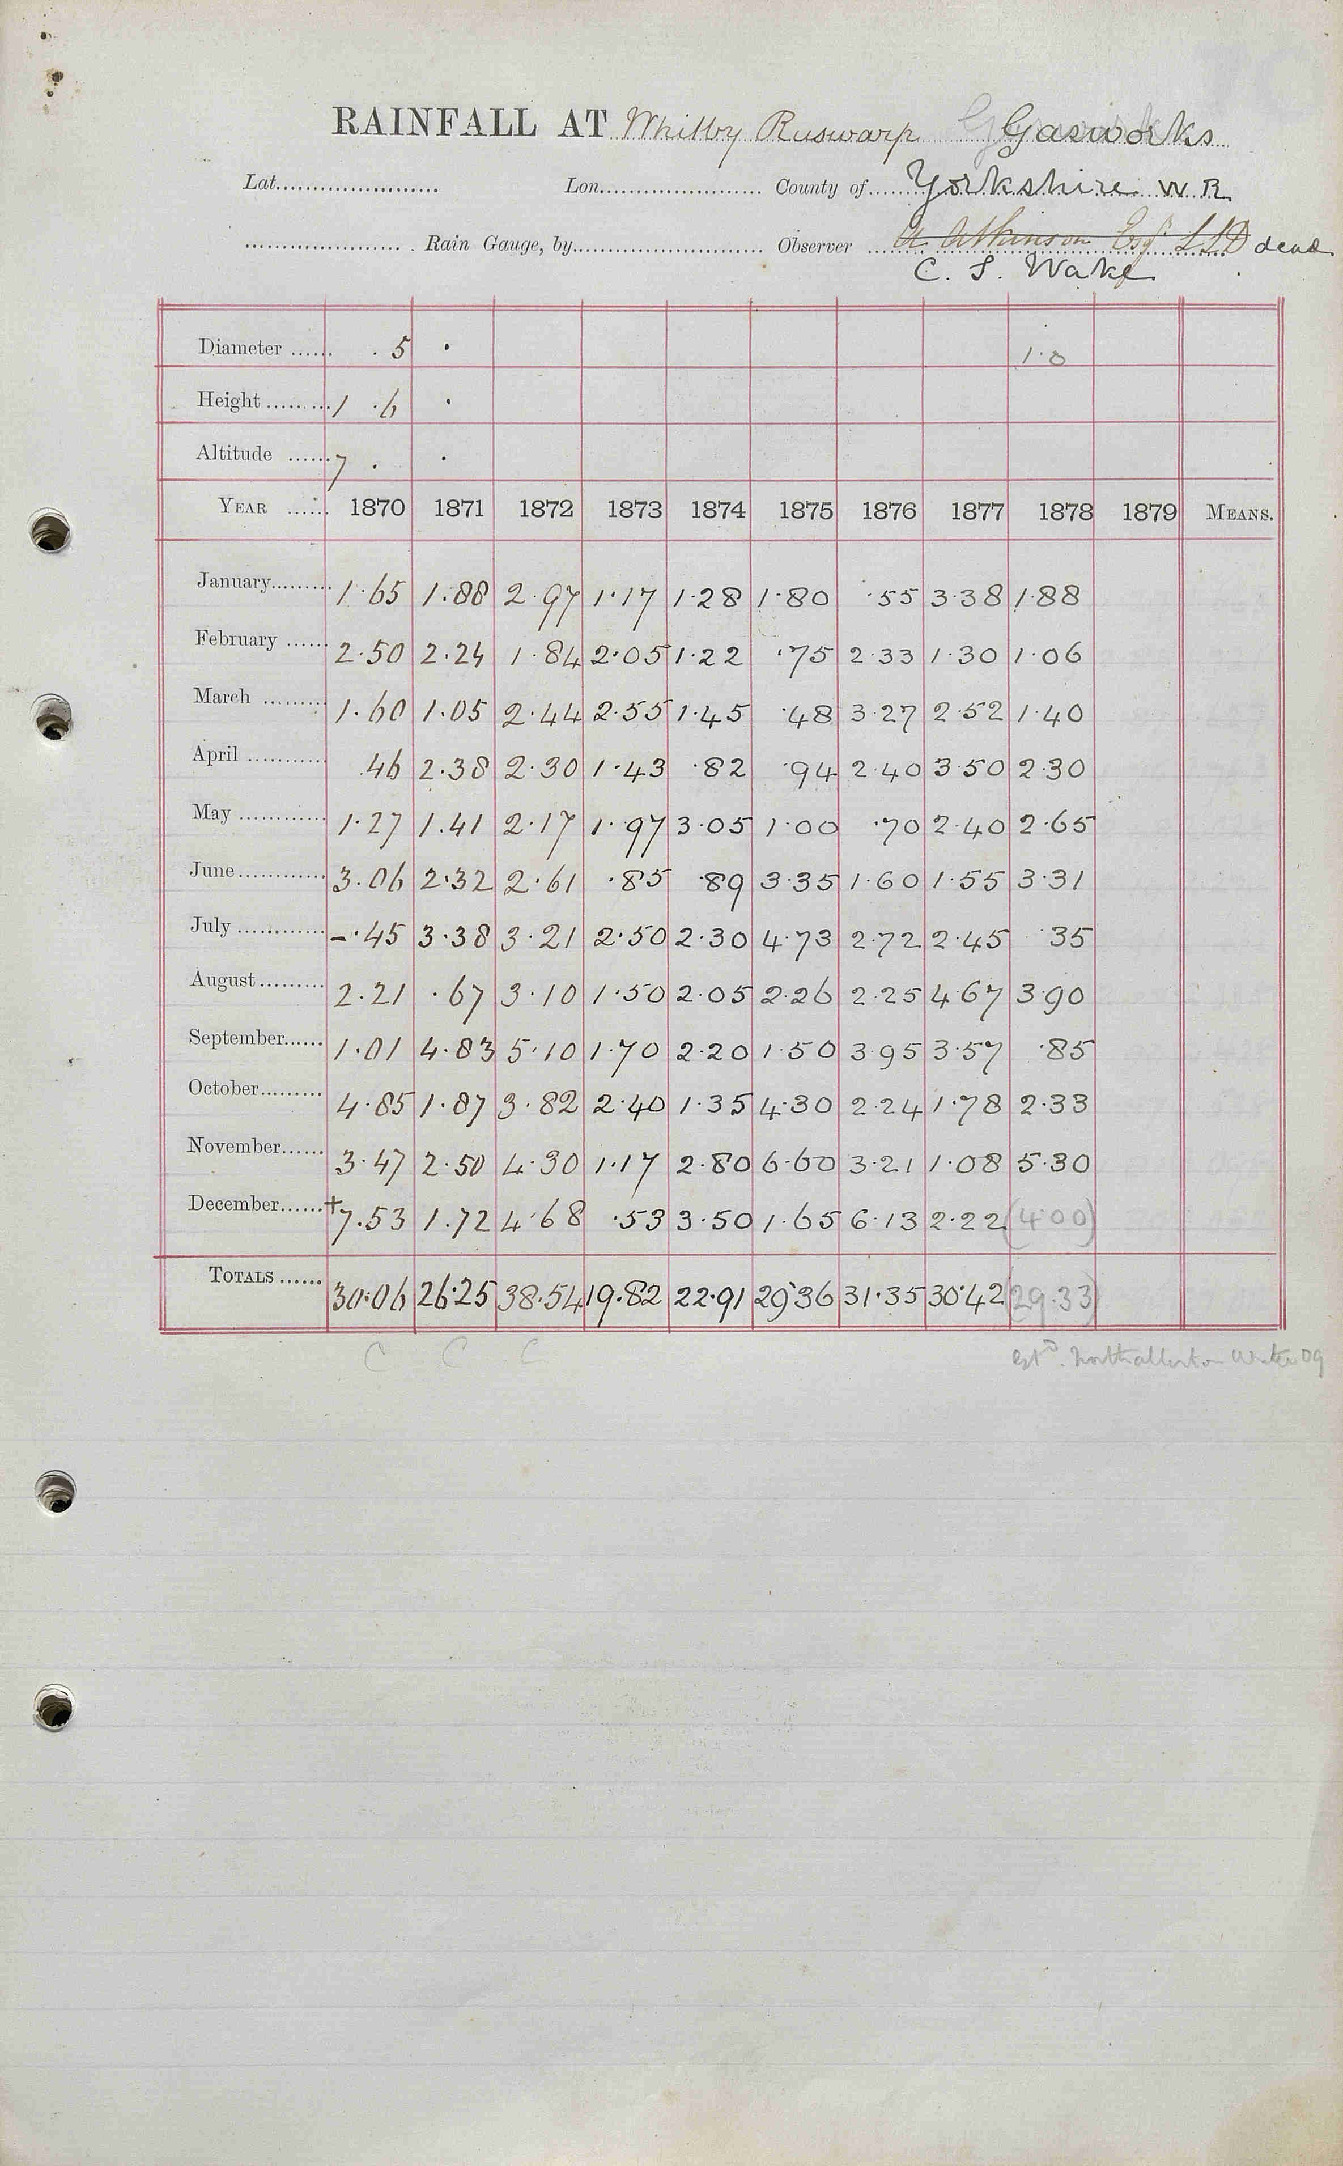 RAINFALL AT Whitby Ruswarp Gasworks
Lat. Lon. County of Yorkshire W R
Rain Gauge, by Observer A Atkinson Esqr LLD dead
C. S. Wake
Diameter 5 · 1·0
Height 1 ·6 ·
Altitude 7 · ·
YEAR 1870 1871 1872 1873 1874 1875 1876 1877 1878 1879 MEANS.
January 1·65 1·88 2·97 1·17 1·28 1·80 ·55 3·38 1·88
February 2·50 2·24 1·84 2·05 1·22 ·75 2·33 1·30 1·06
March 1·60 1·05 2·44 2·55 1·45 ·48 3·27 2·52 1·40
April ·46 2·38 2·30 1·43 ·82 ·94 2·40 3·50 2·30
May 1·27 1·41 2·17 1·97 3·05 1·00 ·70 2·40 2·65
June 3·06 2·32 2·61 ·85 ·89 3·35 1·60 1·55 3·31
July –·45 3·38 3·21 2·50 2·30 4·73 2·72 2·45 ·35
August 2·21 ·67 3·10 1·50 2·05 2·26 2·25 4·67 3·90
September 1·01 4·83 5·10 1·70 2·20 1·50 3·95 3·57 ·85
October 4·85 1·87 3·82 2·40 1·35 4·30 2·24 1·78 2·33
November 3·47 2·50 4·30 1·17 2·80 6·60 3·21 1·08 5·30
December +7·53 1·72 4·68 ·53 3·50 1·65 6·13 2·22 (4·00)
TOTALS 30·06 26·25 38·54 19·82 22·91 29·36 31·35 30·42 (29·33)
C C C estd. Northallerton